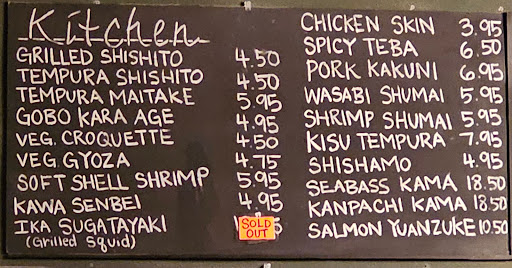 Kitchen
GRILLED SHISHITO 4.50
TEMPURA SHISHITO 4.50
TEMPURA MAITAKE 5.95
GOBO KARA AGE 4.95
VEG. CROQUETTE 4.50
VEG. GYOZA 4.75
SOFT SHELL SHRIMP 5.95
KAWA SENBEI 4.95
IKA SUGATAYAKI SOLD OUT
(Grilled Squid)
CHICKEN SKIN 3.95
SPICY TEBA 6.50
PORK KAKUNI 6.95
WASABI SHUMAI 5.95
SHRIMP SHUMAI 5.95
KISU TEMPURA 7.95
SHISHAMO 4.95
SEABASS KAMA 18.50
KANPACHI KAMA 18.50
SALMON YUANZUKE 10.50